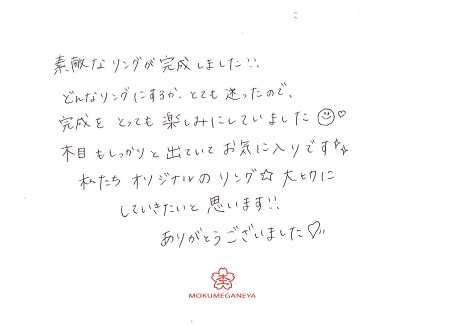 素敵なリングが完成しました!!
どんなリングにするか、とても迷ったので、
完成をとっても楽しみにしていました☺♡
木目もしっかりと出ていてお気に入りです✨
私たちオリジナルのリング☆大切に
していきたいと思います!!
ありがとうございました♡
杢
MOKUMEGANEYA